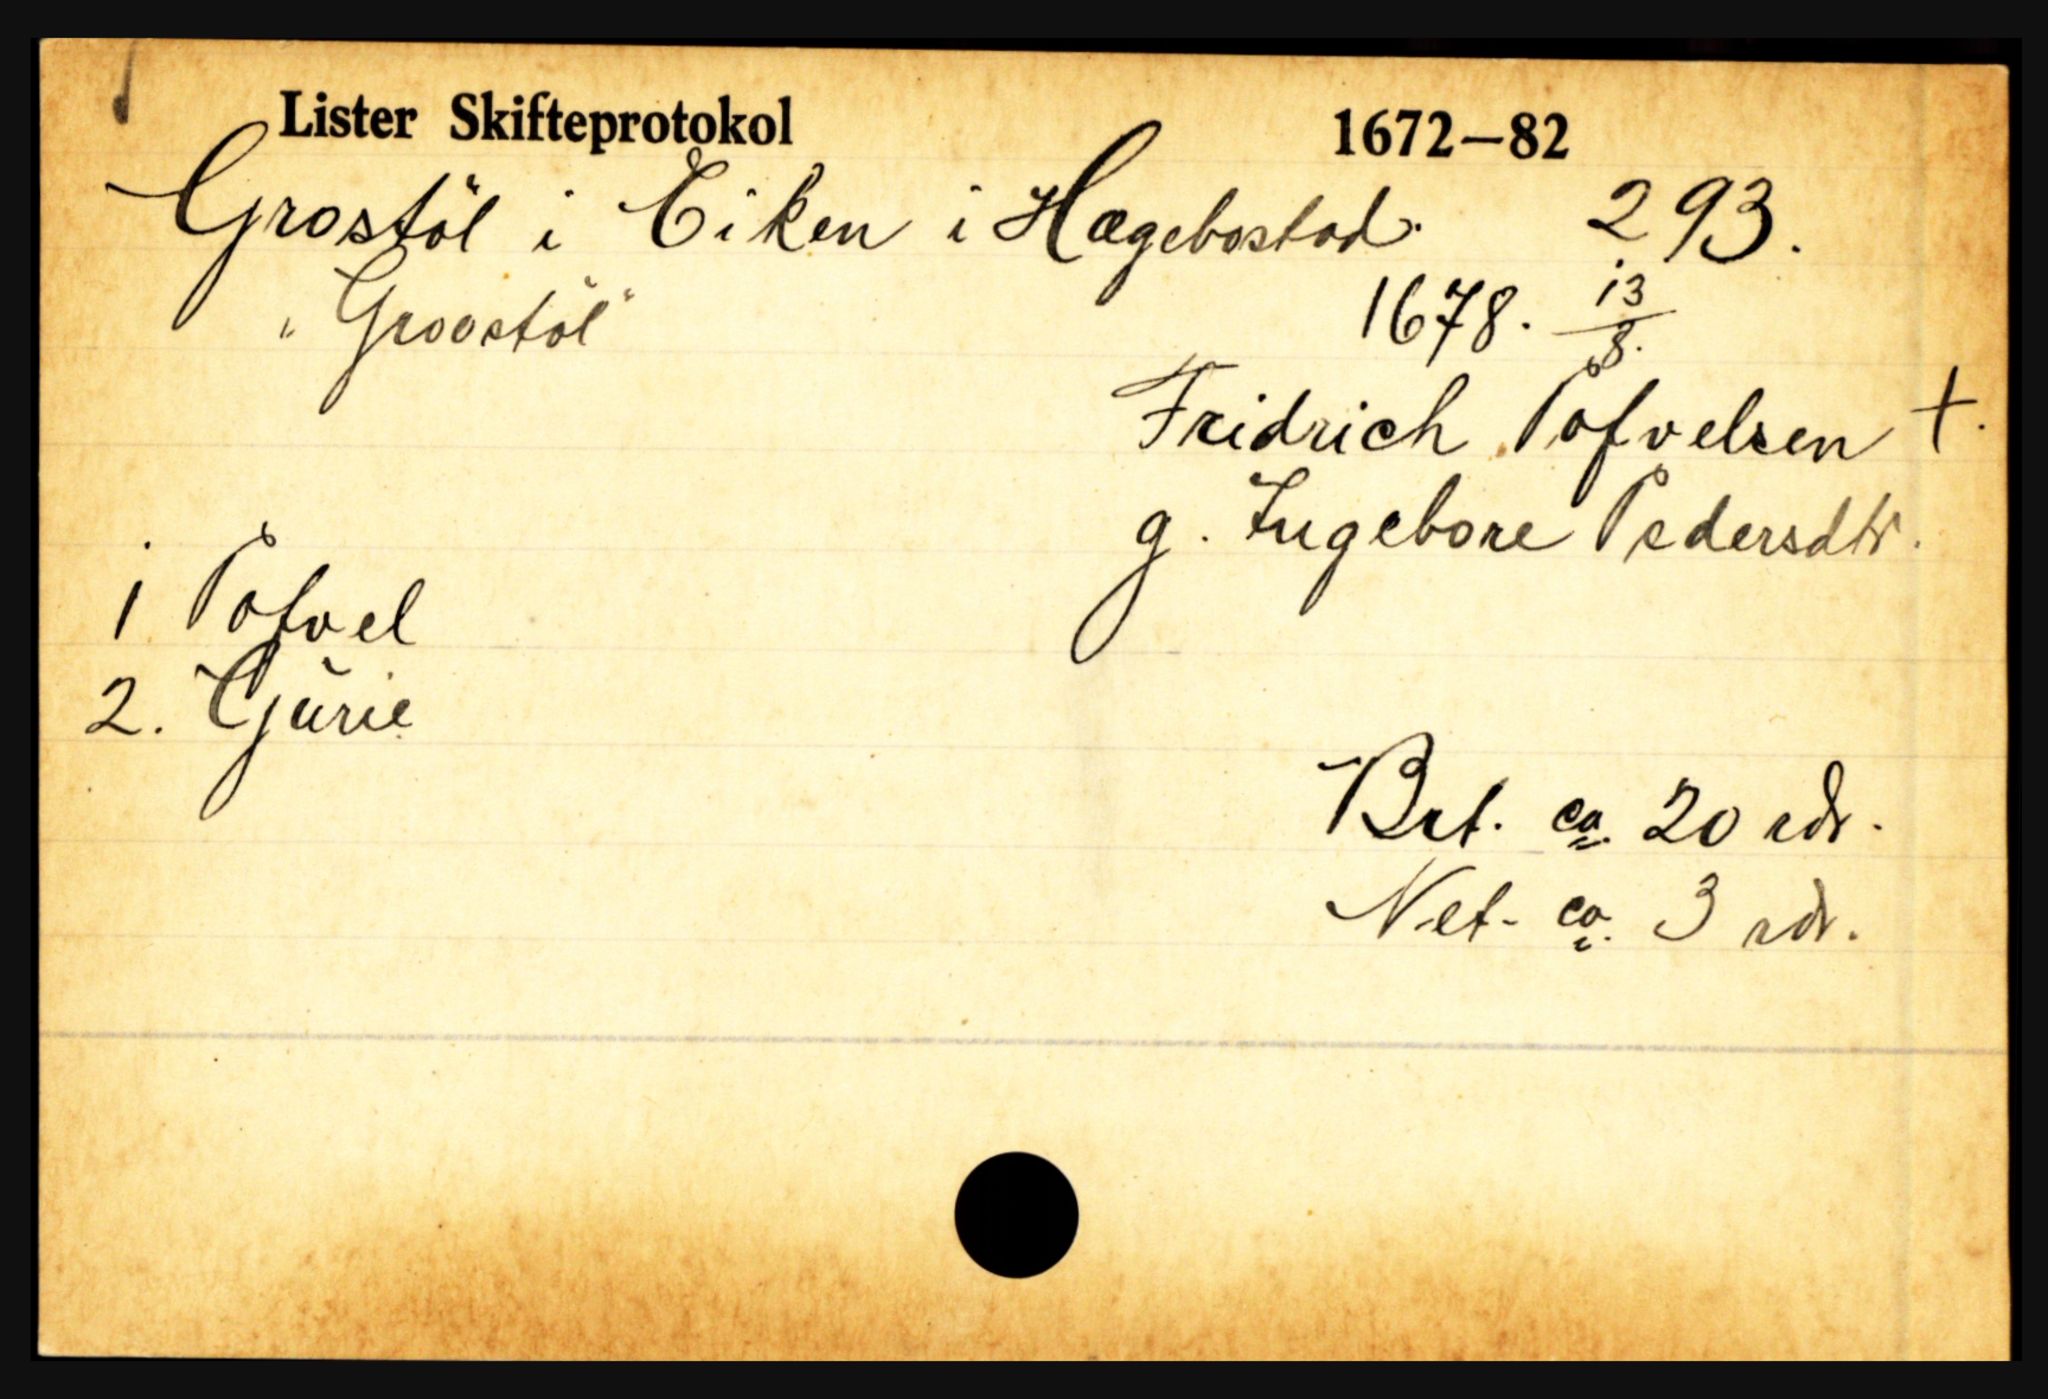 Lister Skifteprotokol 1672—82
Grostöl i Eiken i Hægebostad. 293.
"Groostöl" 1678. 13/8.
Fridrich Pofvelsen +.
g. Ingebore Pedersdtr.
1 Pofvel
2. Gjurie
Brt. ca. 20 rdr.
Net- ca. 3 rdr.